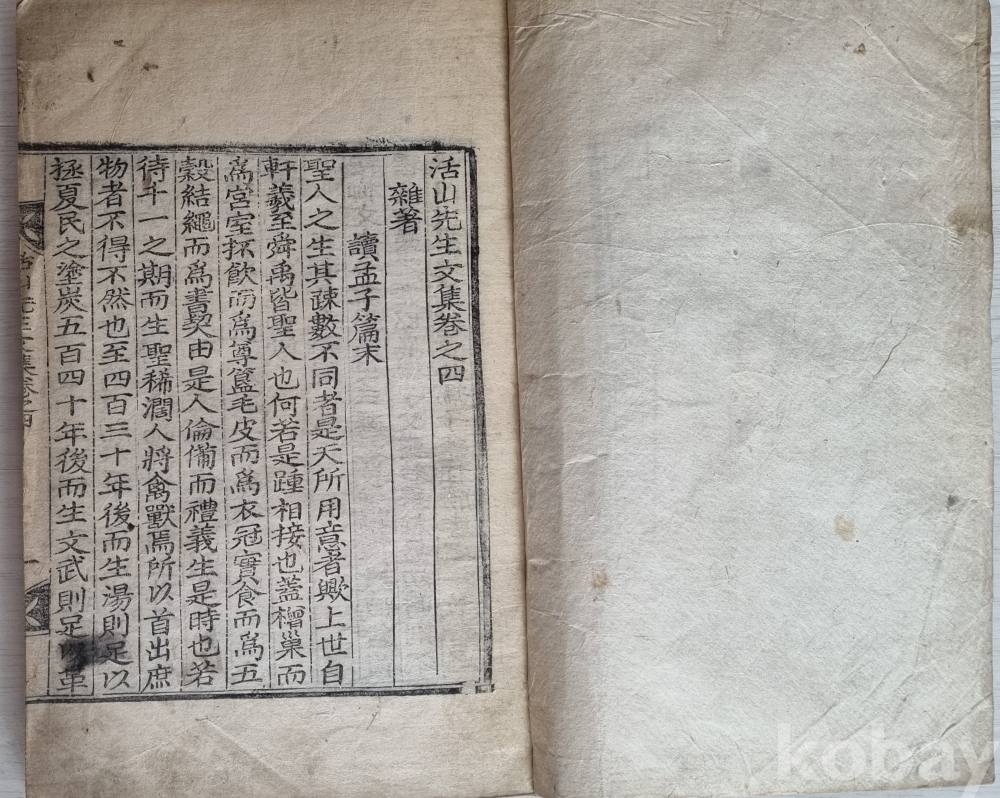 活山先生文集卷之四
雜著
讀孟子篇末
聖人之生其疎數不同者是天所用意者歟上世自
軒羲至舜禹皆聖人也何若是踵相接也蓋橧巢而
爲宮室抔飮而爲尊簋毛皮而爲衣冠實食而爲五
穀結繩而爲書契由是人倫備而禮義生是時也若
待千一之期而生聖稀濶人將禽獸焉所以首出庶
物者不得不然也至四百三十年後而生湯則足以
拯夏民之塗炭五百四十年後而生文武則足以革
活山先生文集卷之四
kobay